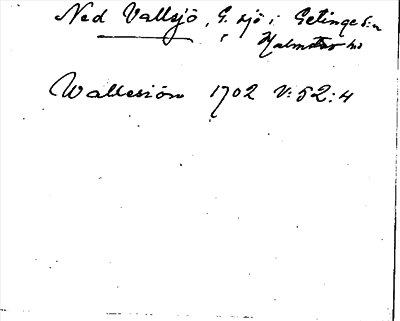 Ned Vallsjö, G. sjö i Getinge sn
Halmstad hd
Wallesiön 1702 V:52:4